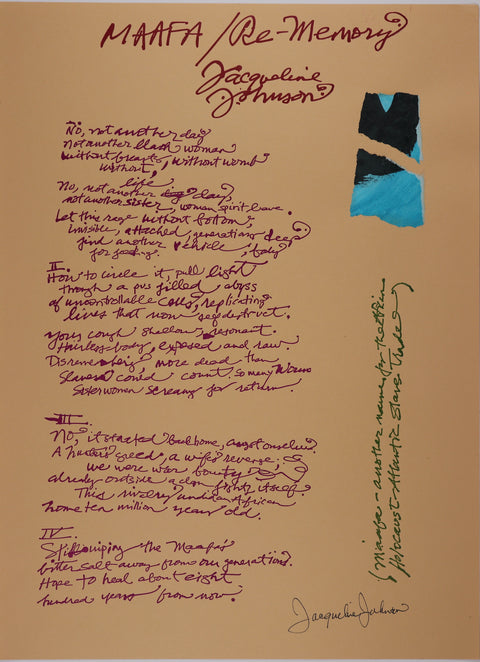 MAAFA / Re-Memory
Jacqueline
Johnson
No, not another day
not another black woman
without breasts, without womb
without,
life
No, not another day,
not another sister, woman spirit leave.
Let this rage without bottom,
invisible, attached, generations deep
find another vehicle, body
for
II.
How to circle it, pull light
through a pus filled abyss
of uncontrollable cells, replicating
lives that now self destruct.
your cough shallow, resonant.
Hairless body, exposed and raw.
more dead than
Slavers could count. So many
Sister women screams for return.
III.
No, it started back home, amongst ourselves.
A hunter's greed, a wife's revenge.
we were war bounty
already outside a clan fights itself.
This rivalry underneath African
home ten million years old.
IV.
Still wiping the Maafa's
bitter salt away from our generations.
Hope to heal about eight
hundred years from now.
(Maafa - another name for the African
Holocaust - Atlantic Slave Trade)
Jacqueline Johnson